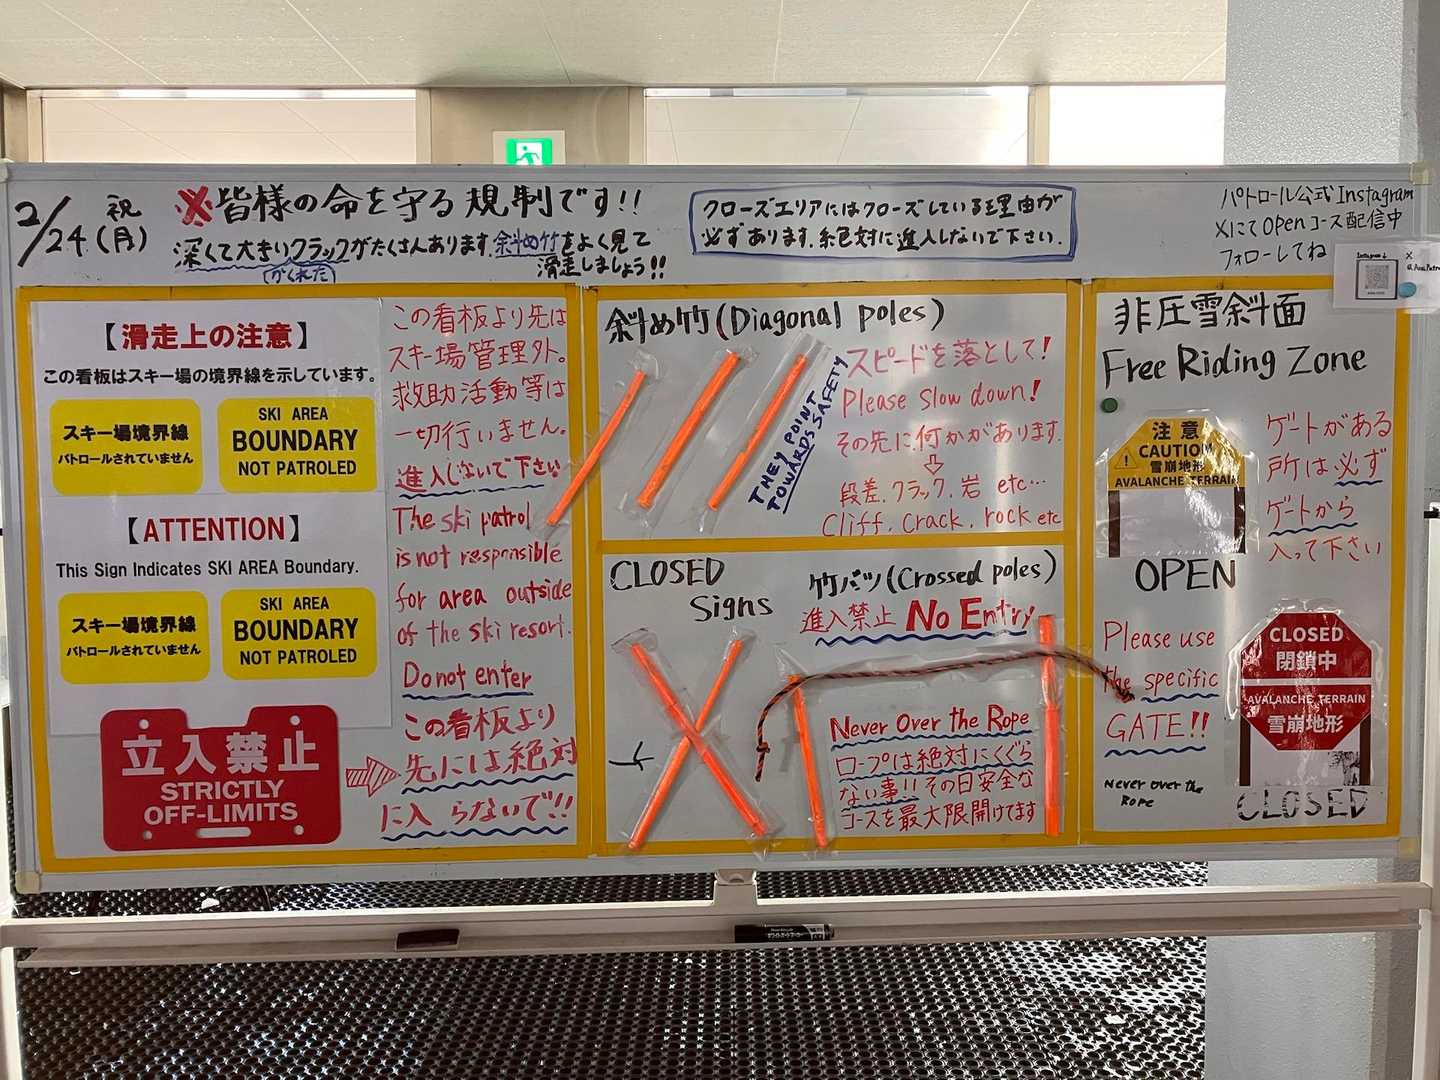 2/24 祝(月)
※皆様の命を守る規制です!!
深くて大きいクラックがたくさんあります.斜め竹をよく見て
かくれた
滑走しましょう!!
クローズエリアにはクローズしている理由が
必ずあります.絶対に進入しないで下さい.
パトロール公式Instagram
XにてOpenコース配信中
フォローしてね
Instagram↓
X
【滑走上の注意】
この看板はスキー場の境界線を示しています。
スキー場境界線
パトロールされていません
SKI AREA
BOUNDARY
NOT PATROLED
【ATTENTION】
This Sign Indicates SKI AREA Boundary.
スキー場境界線
パトロールされていません
SKI AREA
BOUNDARY
NOT PATROLED
立入禁止
STRICTLY
OFF-LIMITS
この看板より先は
スキー場管理外。
救助活動等は
一切行いません。
進入しないで下さい
The ski patrol
is not responsible
for area outside
of the ski resort.
Do not enter
この看板より
先には絶対
に入らないで!!
斜め竹(Diagonal poles)
THEY POINT
TOWARDS SAFETY
スピードを落として!
Please slow down!
その先に何かがあります.
段差.クラック.岩 etc…
Cliff. Crack. rock etc
CLOSED
Signs
竹バツ(Crossed poles)
進入禁止 No Entry
Never Over the Rope
ロープは絶対にくぐら
ない事!!その日安全な
コースを最大限開けてます
非圧雪斜面
Free Riding Zone
注意
CAUTION
雪崩地形
AVALANCHE TERRAIN
OPEN
ゲートがある
所は必ず
ゲートから
入って下さい
Please use
the specific
GATE!!
Never over the
Rope
CLOSED
閉鎖中
AVALANCHE TERRAIN
雪崩地形
CLOSED